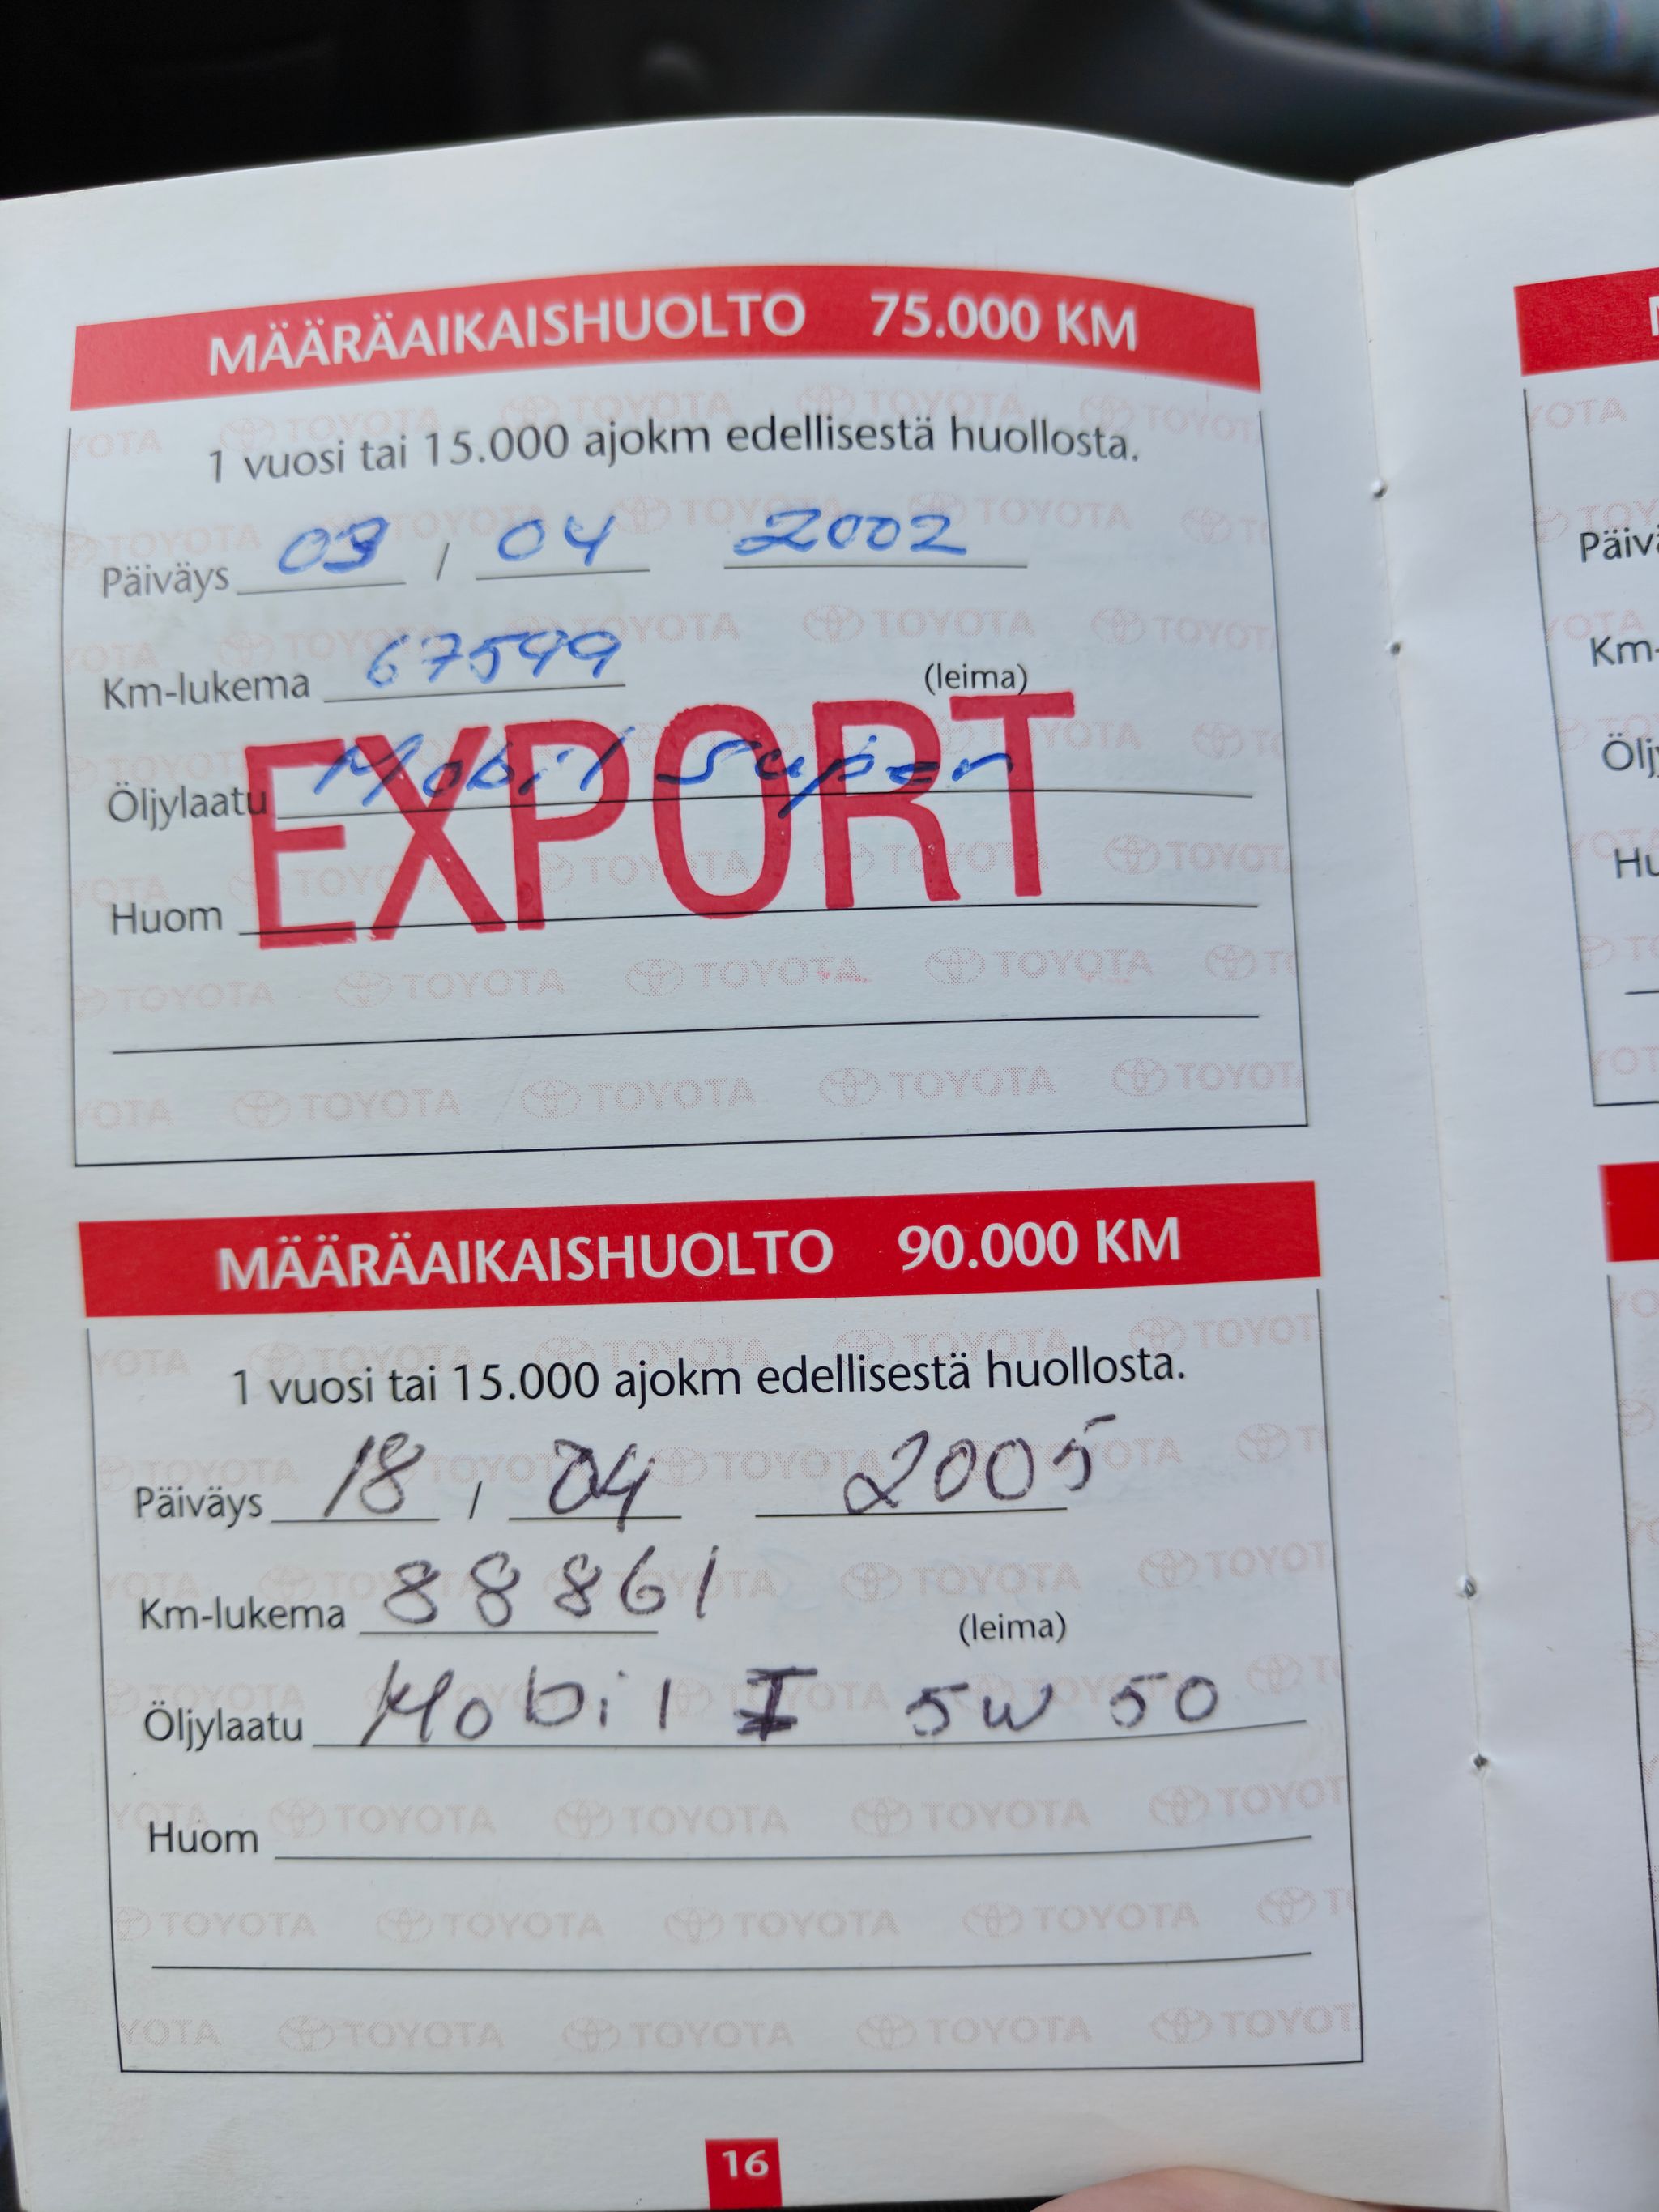 MÄÄRÄAIKAISHUOLTO 75.000 KM
1 vuosi tai 15.000 ajokm edellisestä huollosta.
Päiväys 03 / 04 2002
Km-lukema 67599
(leima)
EXPORT
Öljylaatu Mobil Super
Huom
MÄÄRÄAIKAISHUOLTO 90.000 KM
1 vuosi tai 15.000 ajokm edellisestä huollosta.
Päiväys 18 / 04 2005
Km-lukema 88861
(leima)
Öljylaatu Mobil I 5W 50
Huom
16
Päiv
Km-
Öljy
Hu